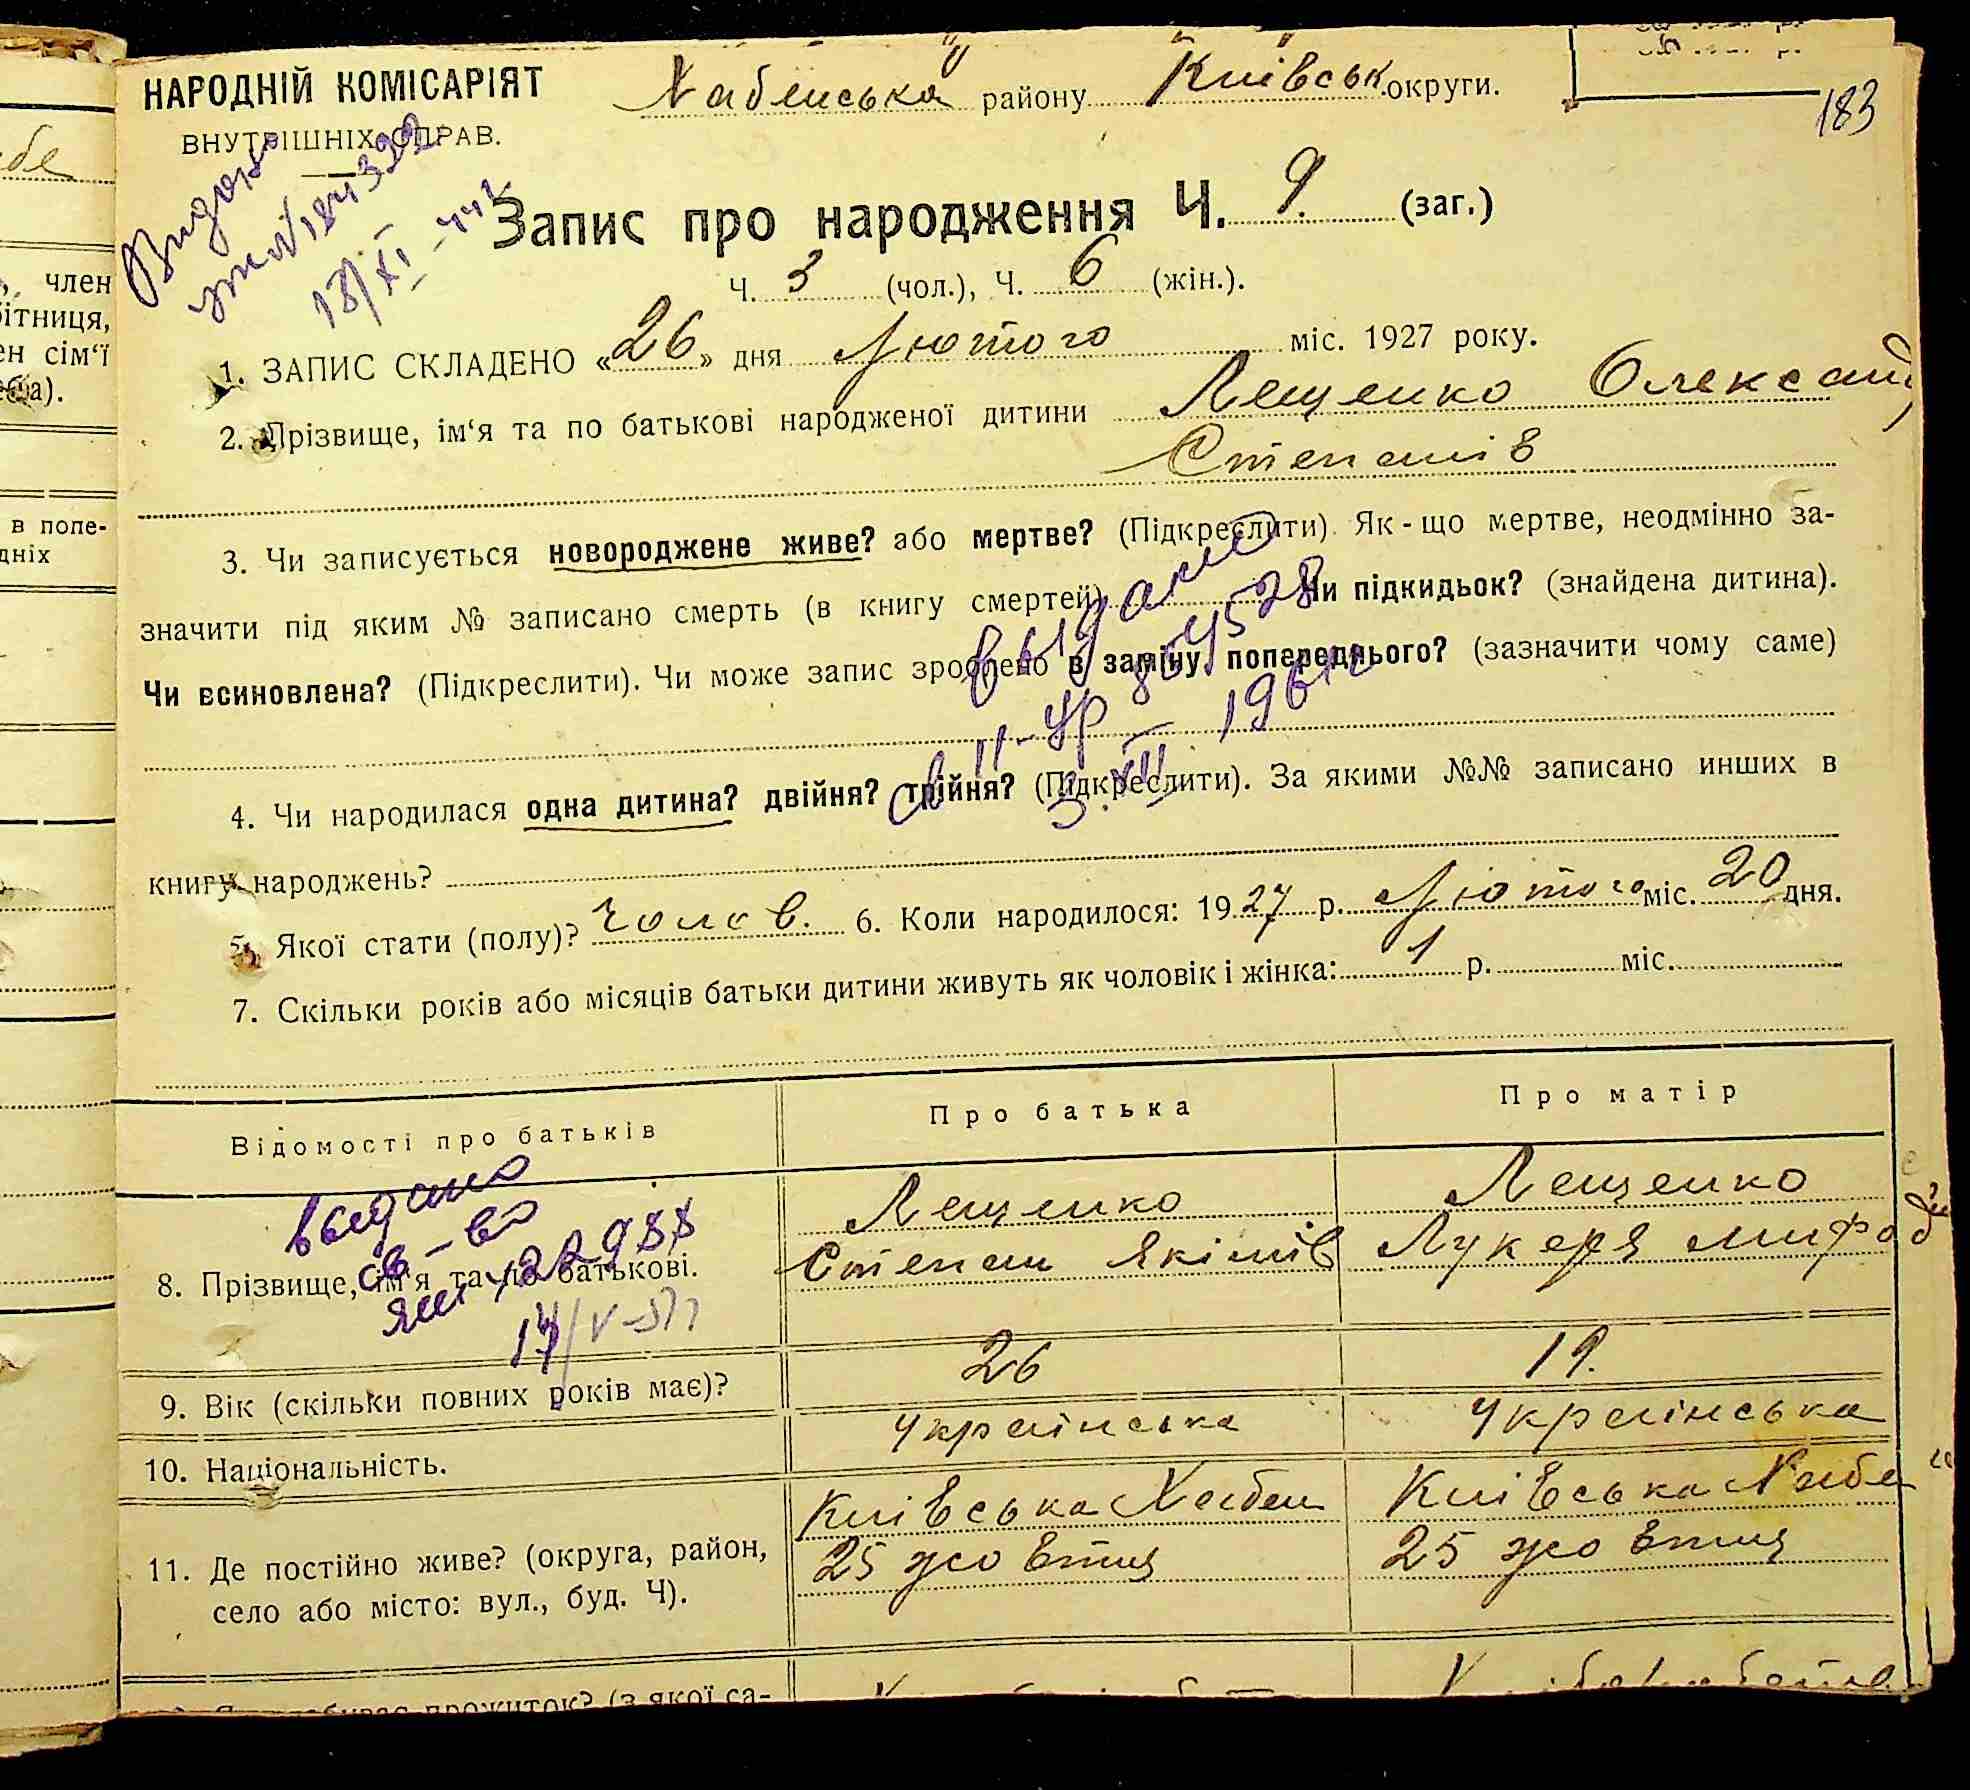 183
НАРОДНІЙ КОМІСАРІЯТ
ВНУТРІШНІХ СПРАВ.
Хабенська району Київськ. округи.
Видано
18/XI-44 г
Запис про народження Ч. 9. (заг.)
Ч. 3 (чол.), Ч. 6 (жін.).
1. ЗАПИС СКЛАДЕНО «26» дня Лютого міс. 1927 року.
2. Прізвище, ім‘я та по батькові народженої дитини Лещенко Олександ
Степанів
3. Чи записується новороджене живе? або мертве? (Підкреслити). Як-що мертве, неодмінно за-
значити під яким № записано смерть (в книгу смертей) Чи підкидьок? (знайдена дитина).
Чи всиновлена? (Підкреслити). Чи може запис зроблено в заміну попереднього? (зазначити чому саме)
выдано
св II-УР
3.XII 1961 г
4. Чи народилася одна дитина? двійня? трійня? (Підкреслити). За якими №№ записано инших в
книгу народжень?
5. Якої стати (полу)? чолов. 6. Коли народилося: 1927 р. Лютого міс. 20 дня.
7. Скільки років або місяців батьки дитини живуть як чоловік і жінка: 1 р. міс.
Відомості про батьків Про батька Про матір
выдано
св-во
8. Прізвище, ім‘я та по батькові. Лещенко Лещенко
Степан Якімів Лукеря Мифод
9. Вік (скільки повних років має)? 26 19.
10. Національність. Українська Українська
11. Де постійно живе? (округа, район, Київська Хабен Київська Хабен
село або місто: вул., буд. Ч). 25 жовтня 25 жовтня
прожиток? (з якої са-
член
ітниця,
ен сім‘ї
в попе-
дніх